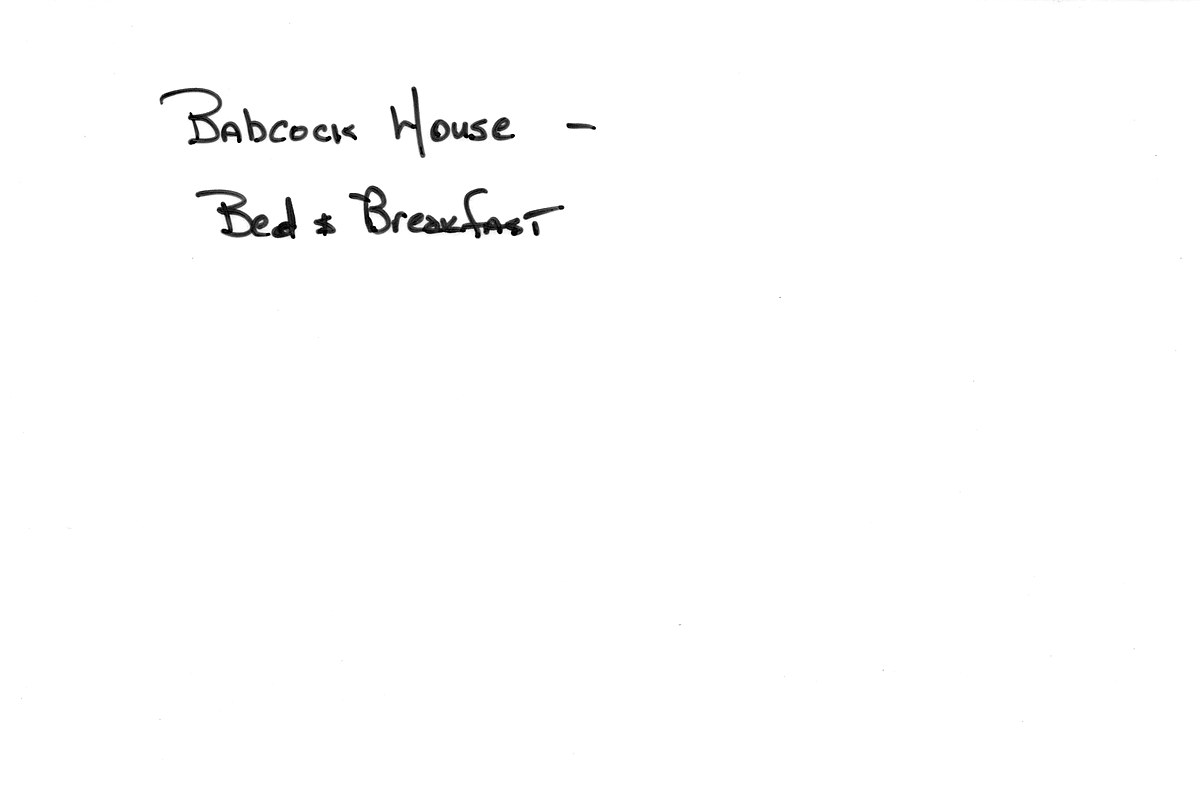 Babcock House -
Bed & Breakfast